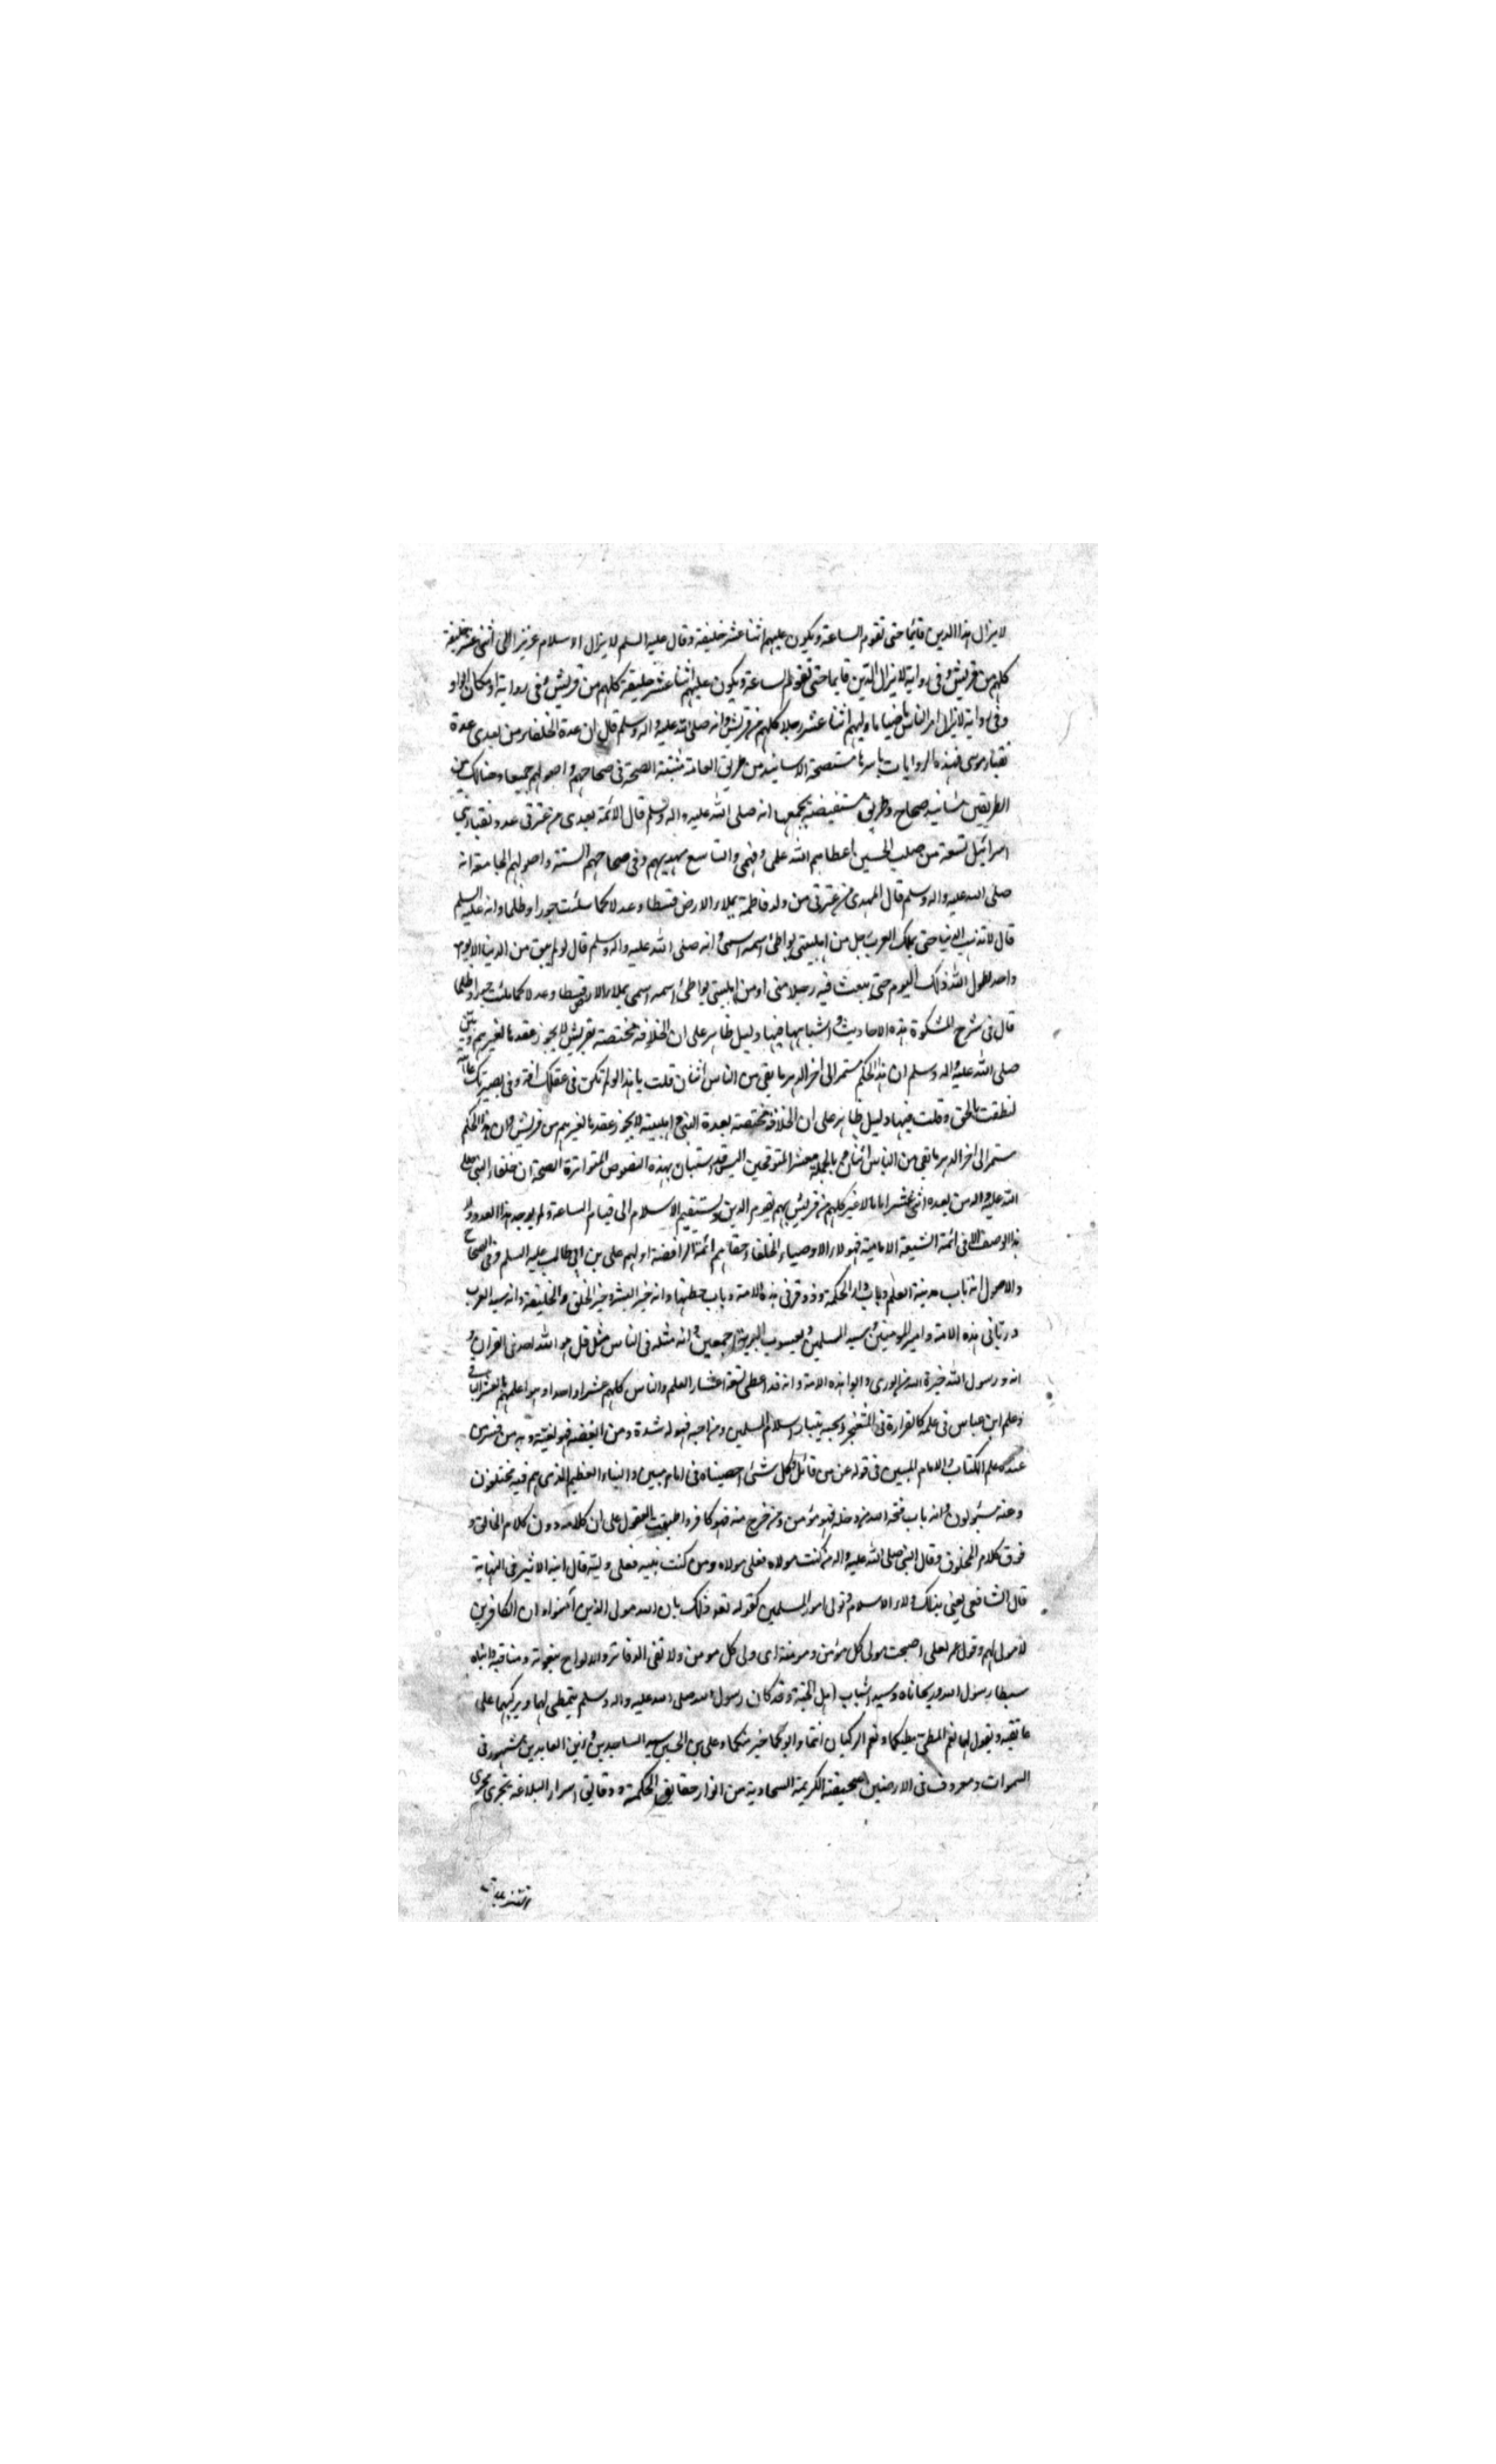 لا يزال هذا الدين قائما حتى تقوم الساعة ويكون عليهم اثنا عشر خليفة وقال عليه السلم لا يزال الاسلام عزيزا الى اثنى عشر خليفة
كلهم من قريش وفى رواية لا يزال الدين قايما حتى تقوم الساعة ويكون عليهم اثنا عشر خليفة كلهم من قريش وفى رواية او مكان الواو
وفى رواية لا يزال امر الناس ماضيا ما وليهم اثنا عشر رجلا كلهم من قريش وانه صلى الله عليه واله وسلم قال ان عدة الخلفاء من بعدى عدة
نقباء موسى فهذه الروايات باسرها مستصحة الاسانيد من طريق العامة مثبتة الصحة فى صحاحهم واصولهم جميعا وهنالك من
الطريقين مسانيد صحاح وطريق مستفيضة يجمعها انه صلى الله عليه واله وسلم قال الائمة بعدى من عترتى عدد نقباء بنى
اسرائيل تسعة من صلب الحسين اعطاهم الله علمى وفهمى والتاسع مهديهم وفى صحاحهم الستة واصولهم الجامعة انه
صلى الله عليه واله وسلم قال المهدى من عترتى من ولد فاطمة يملاء الارض قسطا وعدلا كما ملئت جورا وظلما وانه عليه السلم
قال لا تذهب الدنيا حتى يملك العرب رجل من اهلبيتى يواطئ اسمه اسمى وانه صلى الله عليه واله وسلم قال لو لم يبق من الدنيا الا يوم
واحد لطول الله ذلك اليوم حتى يبعث فيه رجلا منى او من اهلبيتى يواطئ اسمه اسمى يملاء الارض قسطا وعدلا كما ملئت جورا وظلما
قال فى شرح المشكوة هذه الاحاديث واشباهها فيها دليل ظاهر على ان الخلافة مختصة بقريش لا يجوز عقدها لغيرهم وبين
صلى الله عليه واله وسلم ان هذا الحكم مستمر الى اخر الدهر ما بقى من الناس اثنان قلت يا هذا لو لم تكن فى عقلك افة وفى بصيرتك
لنطقت بالحق وقلت فيها دليل ظاهر على ان الخلافة مختصة بعدة النبى واهلبيته لا يجوز عقدها لغيرهم من قريش وان هذا الحكم
مستمر الى اخر الدهر ما بقى من الناس اثنان وبالجملة معشر المتوقحين اليس قد استبان بهذه النصوص المتواترة الصحة ان خلفاء النبى صلى
الله عليه واله من بعده اثنى عشر اماما لا غير كلهم من قريش بهم يقوم الدين ويستقيم الاسلام الى قيام الساعة ولم يوجد هذا العدد ولا
هذا الوصف الا فى ائمة الشيعة الامامية فهؤلاء الاوصياء الخلفاء حقا هم ائمة الرافضة اولهم على بن ابى طالب عليه السلم وفى الصحاح
والاصول انه باب مدينة العلم وباب دار الحكمة وذو قرنى هذه الامة وباب حطتها وانه خير البشر وخير الخلق والخليقة وانه سيد العرب
وربانى هذه الامة وامير المومنين وسيد المسلمين ويعسوب الدين اجمعين وانه مثله فى الناس مثل قل هو الله احد فى القران و
انه ورسول الله خيرة الله من الورى وابوا هذه الامة وانه قد اعطى تسعة اعشار العلم والناس كلهم عشرا واحدا وهو اعلمهم بالعشر الباقى
وعلم ابن عباس فى علمه كالقرارة فى المثعنجر وبحبه يتبار اسلام المسلمين ومن احبه فهو له شدة ومن ابغضه فهو لغية وهو من
عنده علم الكتاب والامام المبين فى قوله عز من قائل وكل شئ احصيناه فى امام مبين والنباء العظيم الذى هم فيه مختلفون
وعنه مسئولون وانه باب فتحه الله من دخله فهو مؤمن ومن خرج منه فهو كافر واطبقت العقول على ان كلامه دون كلام الخالق و
فوق كلام المخلوق وقال النبى صلى الله عليه واله من كنت مولاه فعلى مولاه ومن كنت نبيه فعلى وليه قال ابن الاثير فى النهاية
قال الشافعى يعنى بذلك ولاء الاسلام وتولى امور المسلمين كقوله تعه ذلك بان الله مولى الذين آمنوا وان الكافرين
لا مولى لهم وقول عمر لعلى اصبحت مولى كل مؤمن ومومنة اى ولى كل مومن ولا تفى الدفاتر والالواح بنعوته ومناقبه وابناه
سبطا رسول الله وريحانتاه وسيدا شباب اهل الجنة وقد كان رسول الله صلى الله عليه واله وسلم يتمطى لهما ويركبهما على
عاتقيه ويقول لهما نعم المطى مطيكما ونعم الركبان انتما وابوكما خير منكما وعلى بن الحسين سيد الساجدين وزين العابدين مشهور فى
السموات ومعروف فى الارضين وصحيفته الكريمة السجادية من انوار حقايق الحكمة ودقايق اسرار البلاغة تجرى مجرى